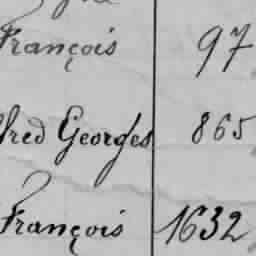 François 97
fred Georges 865
François 1632